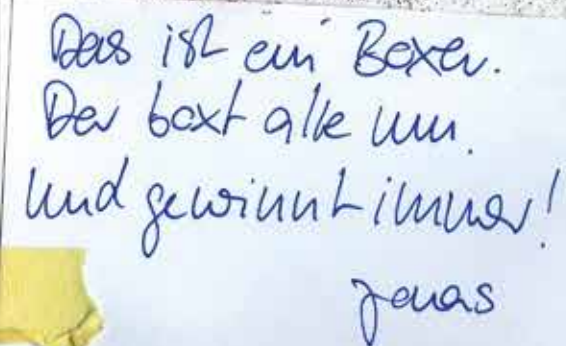 Das ist ein Boxer.
Der boxt alle um.
Und gewinnt immer!
Jonas